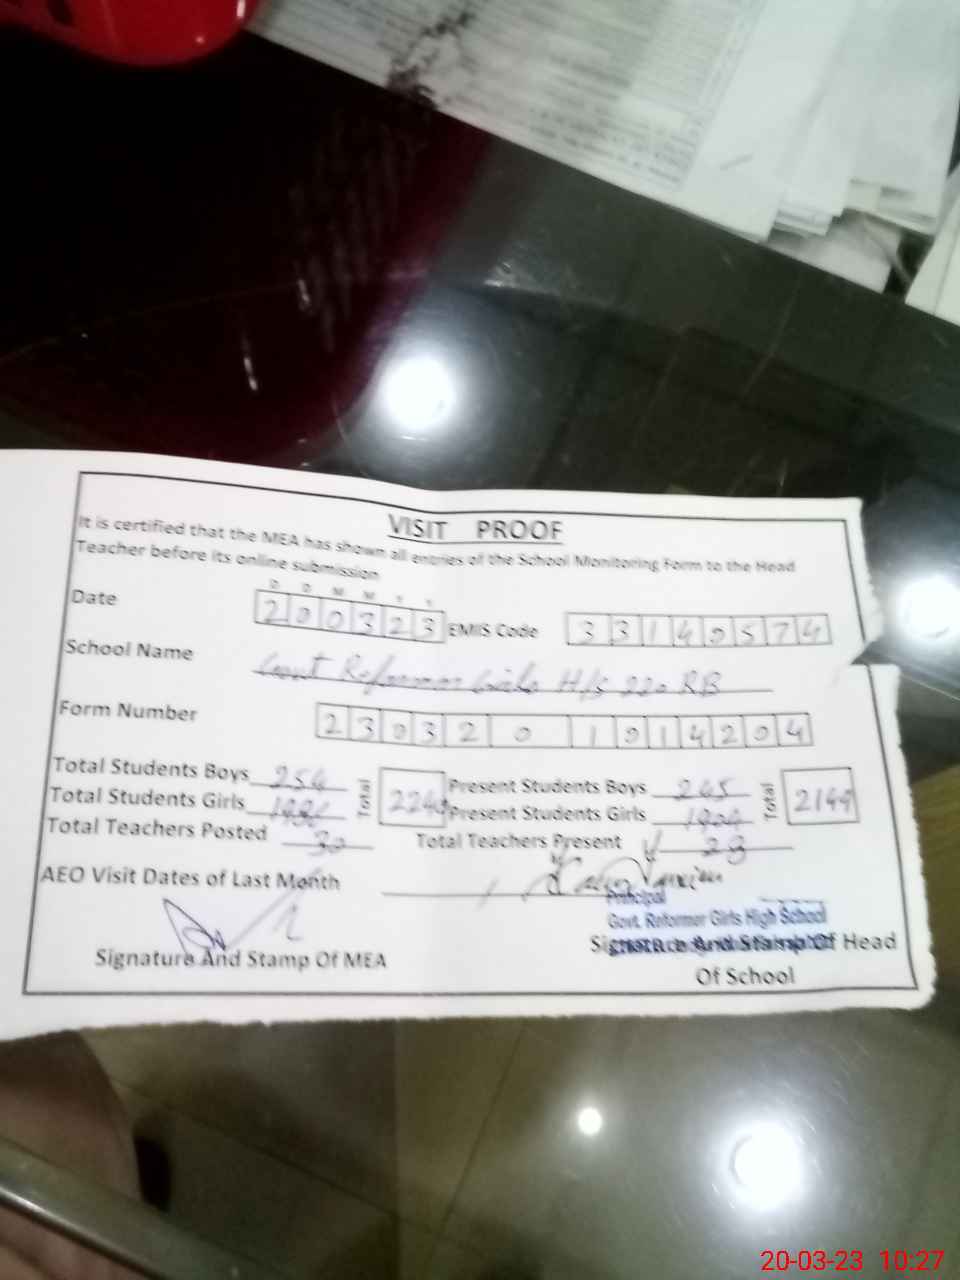 VISIT PROOF
It is certified that the MEA has shown all entries of the School Monitoring Form to the Head
Teacher before its online submission
D D M M Y Y
Date 200323 EMIS Code 33140574
School Name Govt Reformer Girls H/S 220 RB
Form Number 2303201014204
Total Students Boys 254 Total 2240 Present Students Boys 245 Total 2149
Total Students Girls 1986 Present Students Girls 1904
Total Teachers Posted 30 Total Teachers Present 28
AEO Visit Dates of Last Month
Principal
Govt. Reformer Girls High School
Signature And Stamp Of MEA
Signature And Stamp Of Head
Of School
20-03-23 10:27